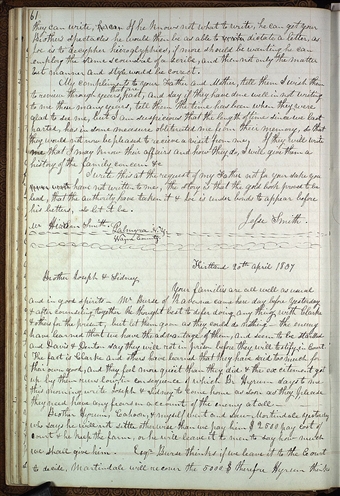 61
they can write, hear. If he knows not what to write, he can get your
Brothers spectacles he would then be as able to dictate a letter, as
Joe is to decypher hieroglyphics, if more should be wanting he can
employ the same scoundrel of a scribe, and then not only the matter
but manner and style would be correct.
My compliments to your Father and Mother, tell them I wish them
to review through years past, and say if they have done well in not writing
to me these many years, tell them the time has been when they were
glad to see me, but I am suspicious that the length of time since we last
parted, has in some measure obliterated me from their memory, so that
they would not now be pleased to receive a visit from me, If they will write
me that I may know their affairs and how they do, I will give them a
history of the family concern &c
I write this at the request of my Father not for your sake you
have not written to me, the story is that the gold book proved to be
lead, that the authority have taken it & Joe is under bonds to appear before
his betters, so let it be.
Jesse Smith.
Mr Hiram Smith.
Palmyra
Wayne County.
Kirtland 20th april 1837
Brother Joseph & Sidney.
Your families are all well as usual
and in good spirits — Mr Burse of Ravenna came here day before yesterday
& after counseling together he thought best to defer doing any thing with Clarke
& others for the present, but let them gnaw as they could do nothing — the enemy
have learned that we have the advantage of them, and seem to be startled
and Davis & Denton say they will rot in prison before they will testify in Court
The fact is Clarke and others have learned that they have said too much for
their own good, and they feel more quiet than they did & the excitement got
up by them runs low, in consequence of which Br Hyrum says to me
this morning write Joseph & Sidney to come home as soon as they please
they need have any fears on account of the enemy at all —
Brother Hyrum, Cahoon, & myself went and saw Martindale yesterday
who says he will not settle otherwise than we pay him $2500 pay cost of
Court & he keep the farm, or he will leave it to men to say how much
we shall give him. Esqr Burse thinks if we leave it to the Court
to decide, Martindale will recover the 5000 $ therefore Hyrum thinks